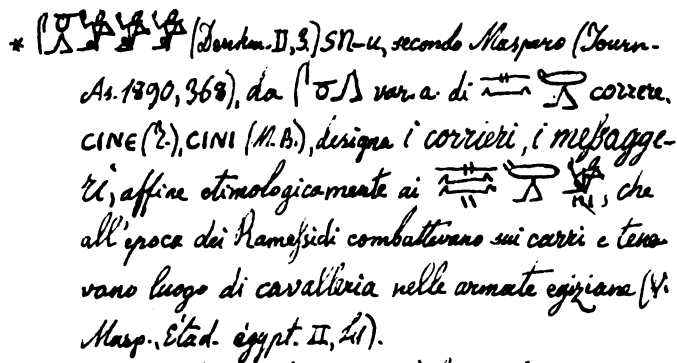 * (Denkm. II, 3.) SN-u, secondo Maspero (Journ.
As. 1890, 368), da var.a. di correre,
CINE (T.), CINI (M.B.), designa i corrieri, i meßagge-
ri, affine etimologicamente ai , che
all'epoca dei Rameßidi combattevano sui carri e tene
vano luogo di cavalleria nelle armate egiziane (V.
Masp., Étud. égypt. II,